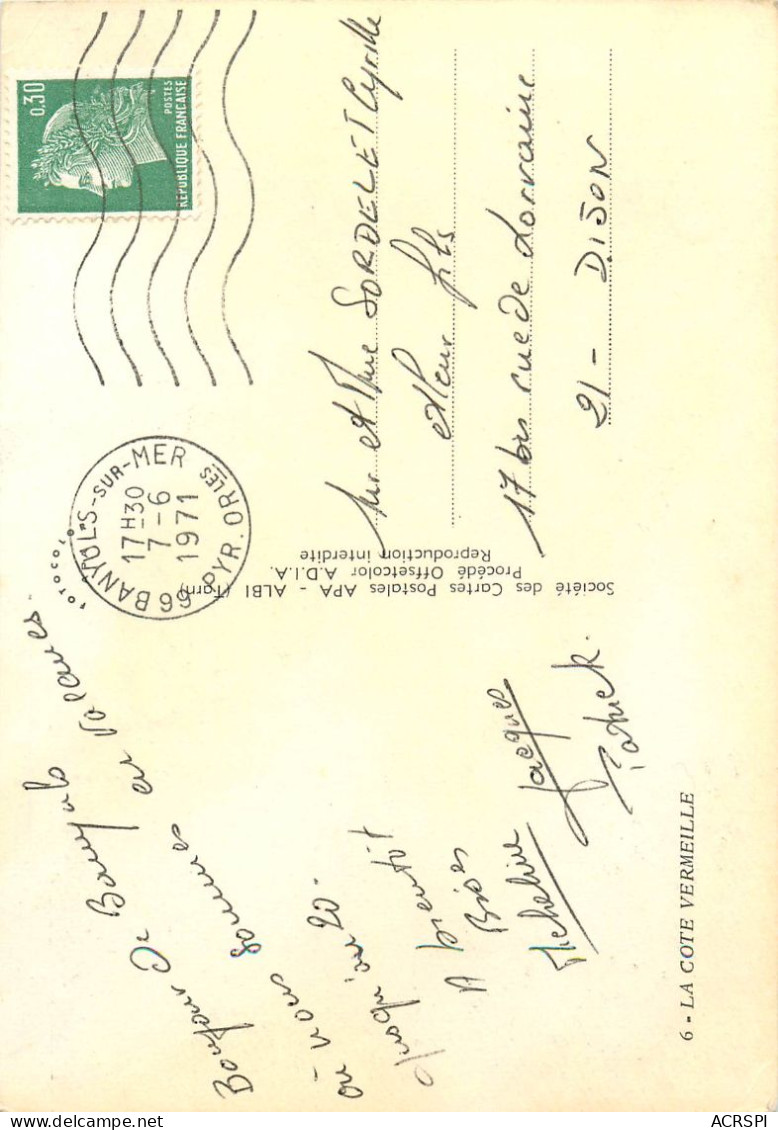 6 - LA COTE VERMEILLE
Bonjour de Banyuls
où nous sommes en vacances
jusqu'au 20.
A bientôt
Bises
Micheline Jacques
Patrick.
Société des Cartes Postales APA - ALBI (Tarn)
Procédé Offsetcolor A.D.I.A.
Reproduction interdite
0,30
POSTES
RÉPUBLIQUE FRANÇAISE
66 BANYULS-SUR-MER
17H30
7-6
1971
PYR. ORLES
Mr et Mme SORDELET Cyrille
et leur fils
17 bis rue de Lorraine
21 - DIJON
ACRSPI